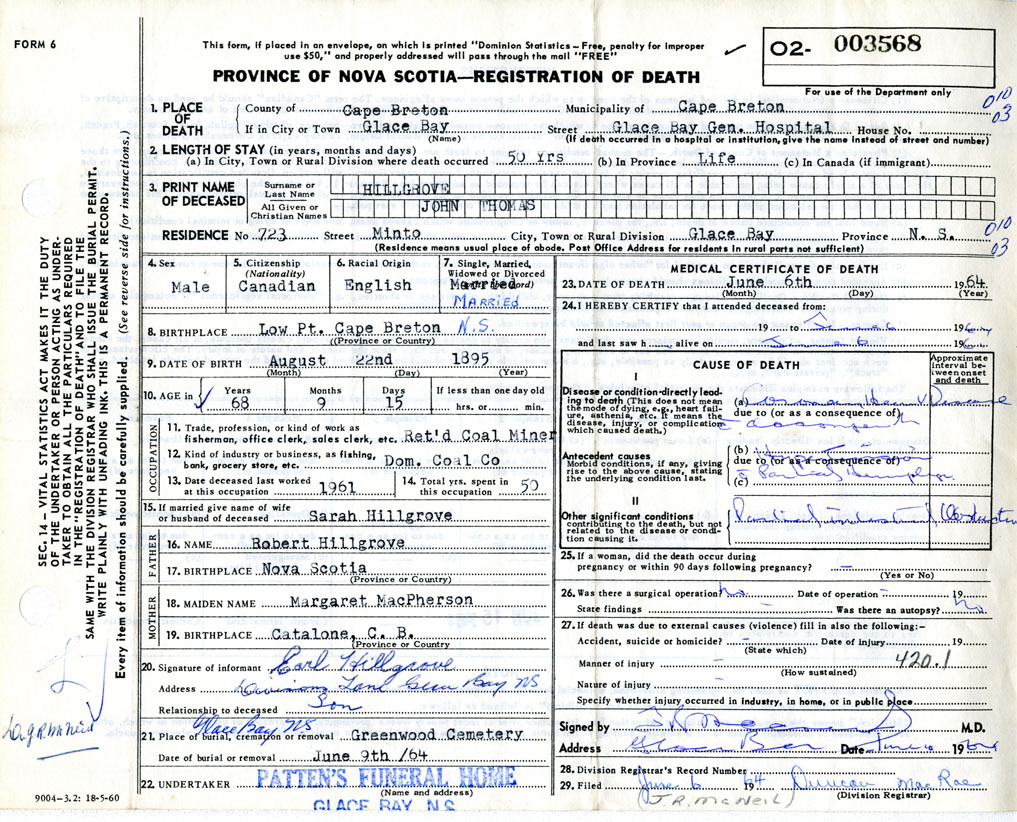 FORM 6
This form, if placed in an envelope, on which is printed "Dominion Statistics – Free, penalty for improper
use $50," and properly addressed will pass through the mail "FREE"
PROVINCE OF NOVA SCOTIA—REGISTRATION OF DEATH
02- 003568
For use of the Department only
010
03
1. PLACE OF DEATH
County of Cape Breton Municipality of Cape Breton
If in City or Town Glace Bay Street Glace Bay Gen. Hospital House No.
(Name) (If death occurred in a hospital or institution, give the name instead of street and number)
2. LENGTH OF STAY (in years, months and days)
(a) In City, Town or Rural Division where death occurred 50 Yrs (b) In Province Life (c) In Canada (if immigrant)
3. PRINT NAME OF DECEASED
Surname or Last Name HILLGROVE
All Given or Christian Names JOHN THOMAS
010
03
RESIDENCE No 723 Street Minto City, Town or Rural Division Glace Bay Province N. S.
(Residence means usual place of abode. Post Office Address for residents in rural parts not sufficient)
4. Sex
Male
5. Citizenship
(Nationality)
Canadian
6. Racial Origin
English
7. Single, Married,
Widowed or Divorced
Married
MARRIED
8. BIRTHPLACE Low Pt. Cape Breton N.S.
(Province or Country)
9. DATE OF BIRTH August 22nd 1895
(Month) (Day) (Year)
10. AGE in
Years 68
Months 9
Days 15
If less than one day old
hrs. or min.
OCCUPATION
11. Trade, profession, or kind of work as
fisherman, office clerk, sales clerk, etc. Ret'd Coal Miner
12. Kind of industry or business, as fishing,
bank, grocery store, etc. Dom. Coal Co
13. Date deceased last worked
at this occupation 1961
14. Total yrs. spent in
this occupation 50
15. If married give name of wife
or husband of deceased Sarah Hillgrove
FATHER
16. NAME Robert Hillgrove
17. BIRTHPLACE Nova Scotia
(Province or Country)
MOTHER
18. MAIDEN NAME Margaret MacPherson
19. BIRTHPLACE Catalone, C. B.
(Province or Country)
20. Signature of informant Earl Hillgrove
Address Bay NS
Relationship to deceased Son
Glace Bay NS
21. Place of burial, cremation or removal Greenwood Cemetery
Date of burial or removal June 9th /64
22. UNDERTAKER PATTEN'S FUNERAL HOME
(Name and address)
GLACE BAY, N.S.
9004-3.2: 18-5-60
MEDICAL CERTIFICATE OF DEATH
23. DATE OF DEATH June 6th 1964
(Month) (Day) (Year)
24. I HEREBY CERTIFY that I attended deceased from:
19 to June 6 1964
and last saw h alive on June 6 196
CAUSE OF DEATH
Approximate interval between onset and death
I
Disease or condition directly leading to death (This does not mean the mode of dying, e.g., heart failure, asthenia, etc. It means the disease, injury, or complication which caused death.)
(a) Disease
due to (or as a consequence of)
Antecedent causes
Morbid conditions, if any, giving rise to the above cause, stating the underlying condition last.
(b)
due to (or as a consequence of)
(c)
II
Other significant conditions
contributing to the death, but not related to the disease or condition causing it.
25. If a woman, did the death occur during
pregnancy or within 90 days following pregnancy? –
(Yes or No)
26. Was there a surgical operation? No Date of operation – 19
State findings – Was there an autopsy? No
27. If death was due to external causes (violence) fill in also the following:-
Accident, suicide or homicide? – Date of injury 19
(State which)
Manner of injury – 420.1
(How sustained)
Nature of injury –
Specify whether injury occurred in industry, in home, or in public place
Signed by M.D.
Address Glace Bay Date June 6 1964
28. Division Registrar's Record Number
29. Filed June 6 1964 Duncan MacRae
(J. R. MacNeil) (Division Registrar)
SEC. 14 – VITAL STATISTICS ACT MAKES IT THE DUTY
OF THE UNDERTAKER OR PERSON ACTING AS UNDER-
TAKER TO OBTAIN ALL THE PARTICULARS REQUIRED
IN THE "REGISTRATION OF DEATH" AND TO FILE THE
SAME WITH THE DIVISION REGISTRAR WHO SHALL ISSUE THE BURIAL PERMIT.
WRITE PLAINLY WITH UNFADING INK. THIS IS A PERMANENT RECORD.
Every item of information should be carefully supplied. (See reverse side for instructions.)